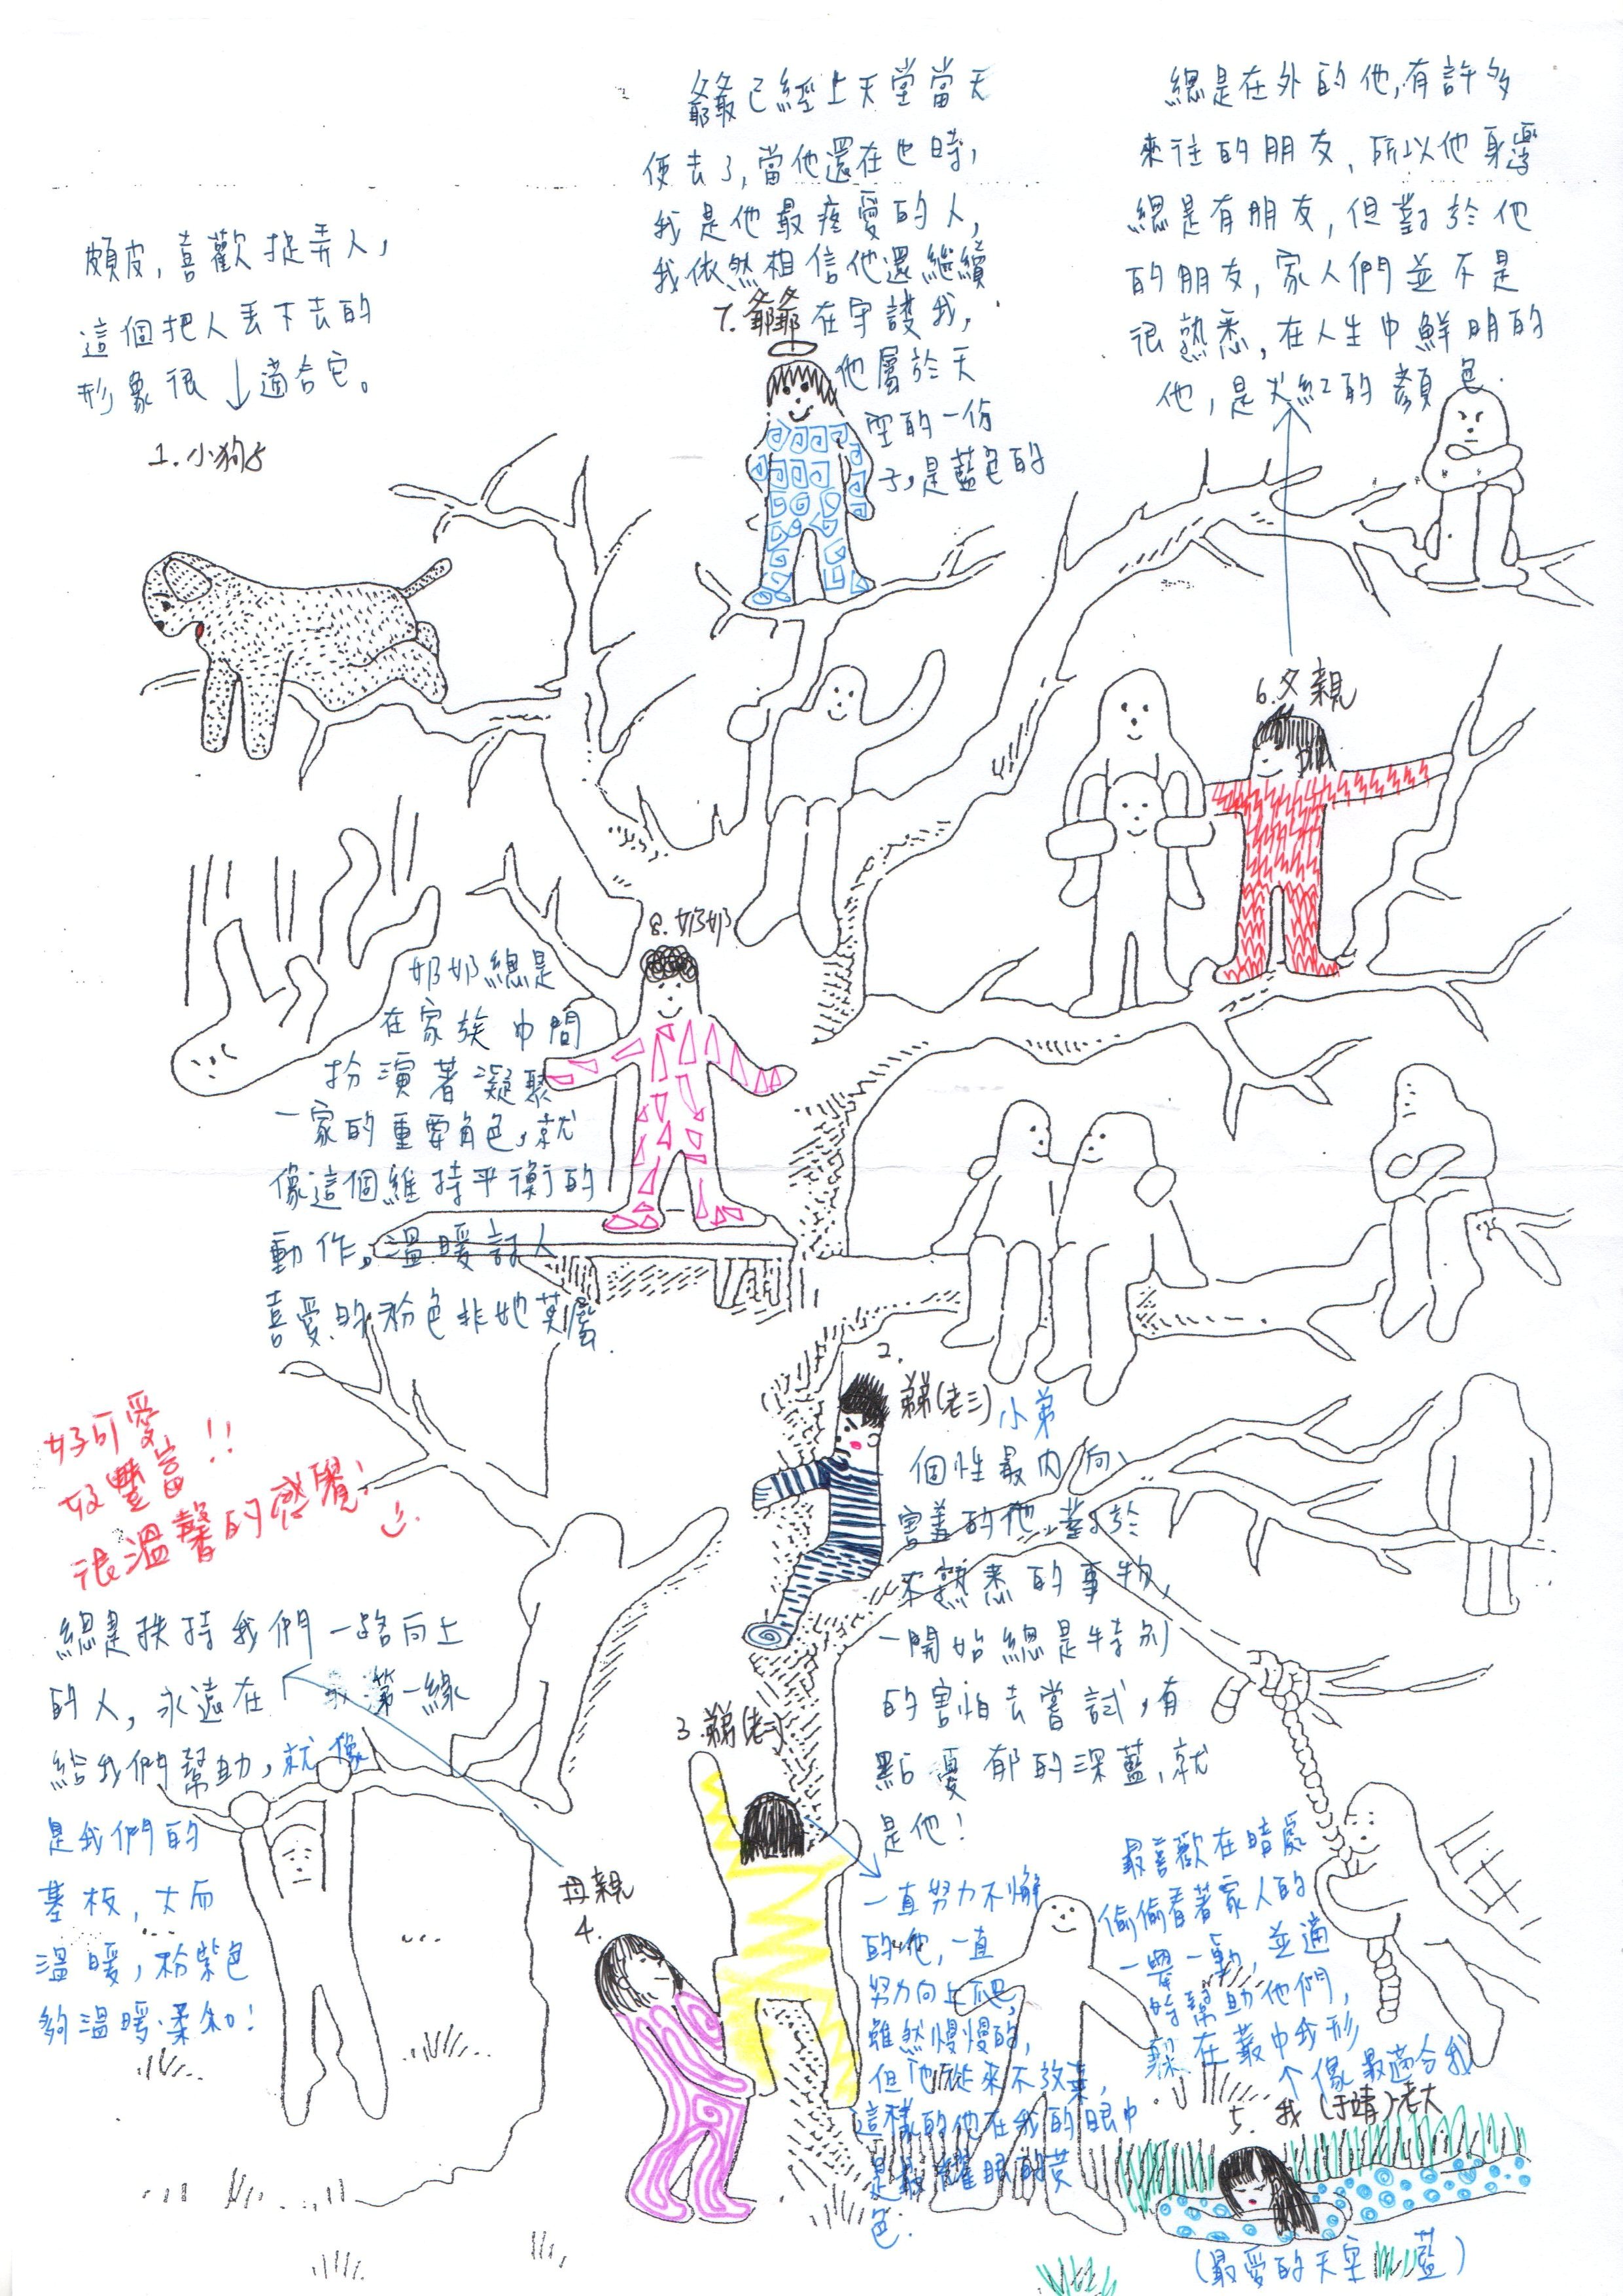 頗皮,喜歡捉弄人,
這個把人丟下去的
形象很↓適合它。
1.小狗ㄍ
爺爺已經上天堂當天
使去了,當他還在也時,
我是他最疼愛的人,
我依然相信他還繼續
7.爺爺 在守護我,
他屬於天
空的一份
子,是藍色的
總是在外的他,有許多
來往的朋友,所以他身邊
總是有朋友,但對於他
的朋友,家人們並不是
很熟悉,在人生中鮮明的
他,是火紅的顏色.
6.父親
8.奶奶
奶奶總是
在家族中間
扮演著凝聚
一家的重要角色,就
像這個維持平衡的
動作。溫暖討人
喜愛的粉色非她莫屬.
好可愛
好豐富!!
很溫馨的感覺!
總是扶持我們一路向上
的人,永遠在 最第一線
給我們幫助,就像
是我們的
基板,大而
溫暖,粉紫色
夠溫暖.柔和!
母親
4.
2.
弟弟(老三)小弟
個性最內向、
害羞的他,對於
不熟悉的事物,
一開始總是特別
的害怕去嘗試,有
點憂郁的深藍,就
是他!
3.弟弟(老二)
一直努力不懈
的他,一直
努力向上爬,
雖然慢慢的,
但他從來不放棄,
這樣的他在我的眼中
是最耀眼的黃
色.
最喜歡在暗處
偷偷看著家人的
一舉一動,並適
時幫助他們,
躲在叢中我形
像最適合我
5.我(于靖)老大
(最愛的天空藍)